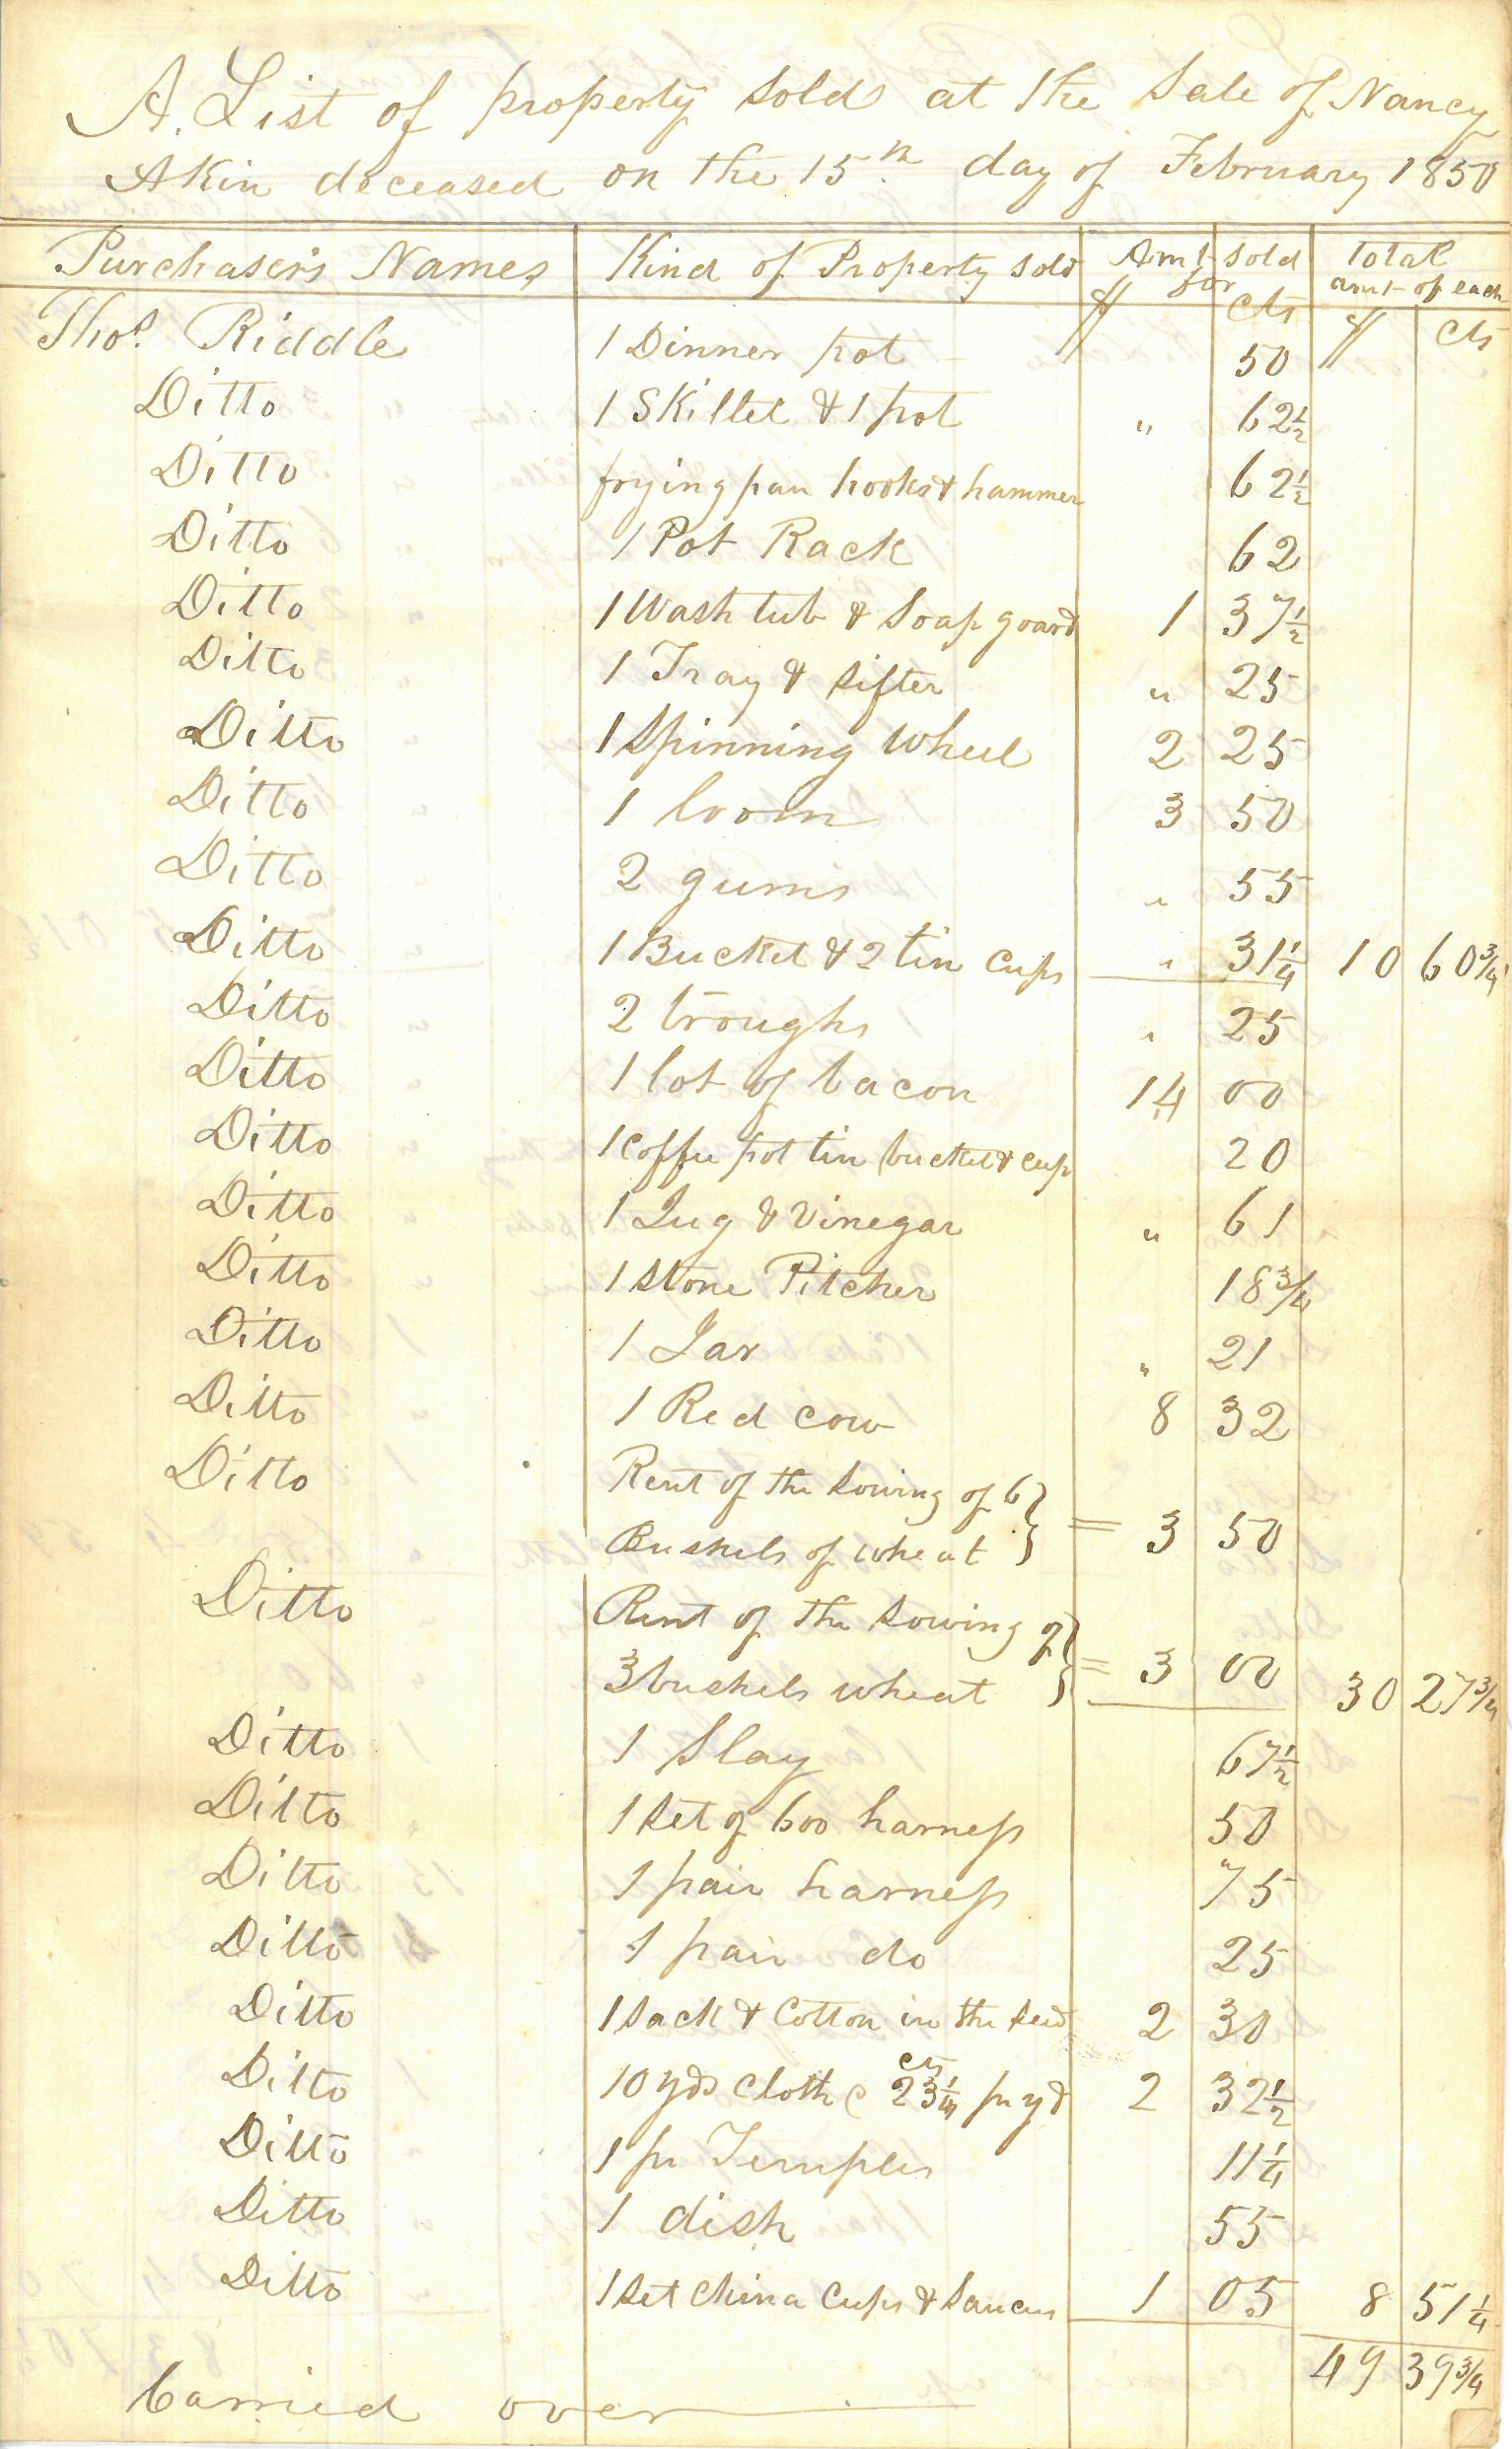 A. List of property sold at the Sale of Nancy
Akin deceased on the 15th day of February 1850
Purchasers Names Kind of Property sold Amt sold for Total amt of each
$ cts $ cts
Thos. Riddle 1 Dinner pot 50
Ditto 1 Skillet & 1 pot " 62½
Ditto frying pan hooks & hammer 62½
Ditto 1 Pot Rack 62
Ditto 1 Wash tub & Soap goard 1 37½
Ditto 1 Tray & sifter " 25
Ditto 1 Spinning Wheel 2 25
Ditto 1 loom 3 50
Ditto 2 gums " 55
Ditto 1 Bucket & 2 tin Cups " 31¼ 10 60¾
Ditto 2 troughs " 25
Ditto 1 lot of bacon 14 00
Ditto 1 Coffee pot tin bucket & cup 20
Ditto 1 Jug & Vinegar " 61
Ditto 1 Stone Pitcher 18¾
Ditto 1 Jar " 21
Ditto 1 Red cow 8 32
Ditto Rent of the Sowing of 6
Bushels of wheat } = 3 50
Ditto Rent of the Sowing of
3 bushels wheat } = 3 00 30 27¾
Ditto 1 Slay 67½
Ditto 1 set of 600 harness 50
Ditto 1 pair harness 75
Ditto 1 pair do 25
Ditto 1 Sack & Cotton in the Seed 2 30
Ditto 10 yds Cloth @ 23¼ cts pr yd 2 32½
Ditto 1 pr Temples 11¼
Ditto 1 dish 55
Ditto 1 Set China Cups & Saucers 1 05 8 51¼
49 39¾
Carried over